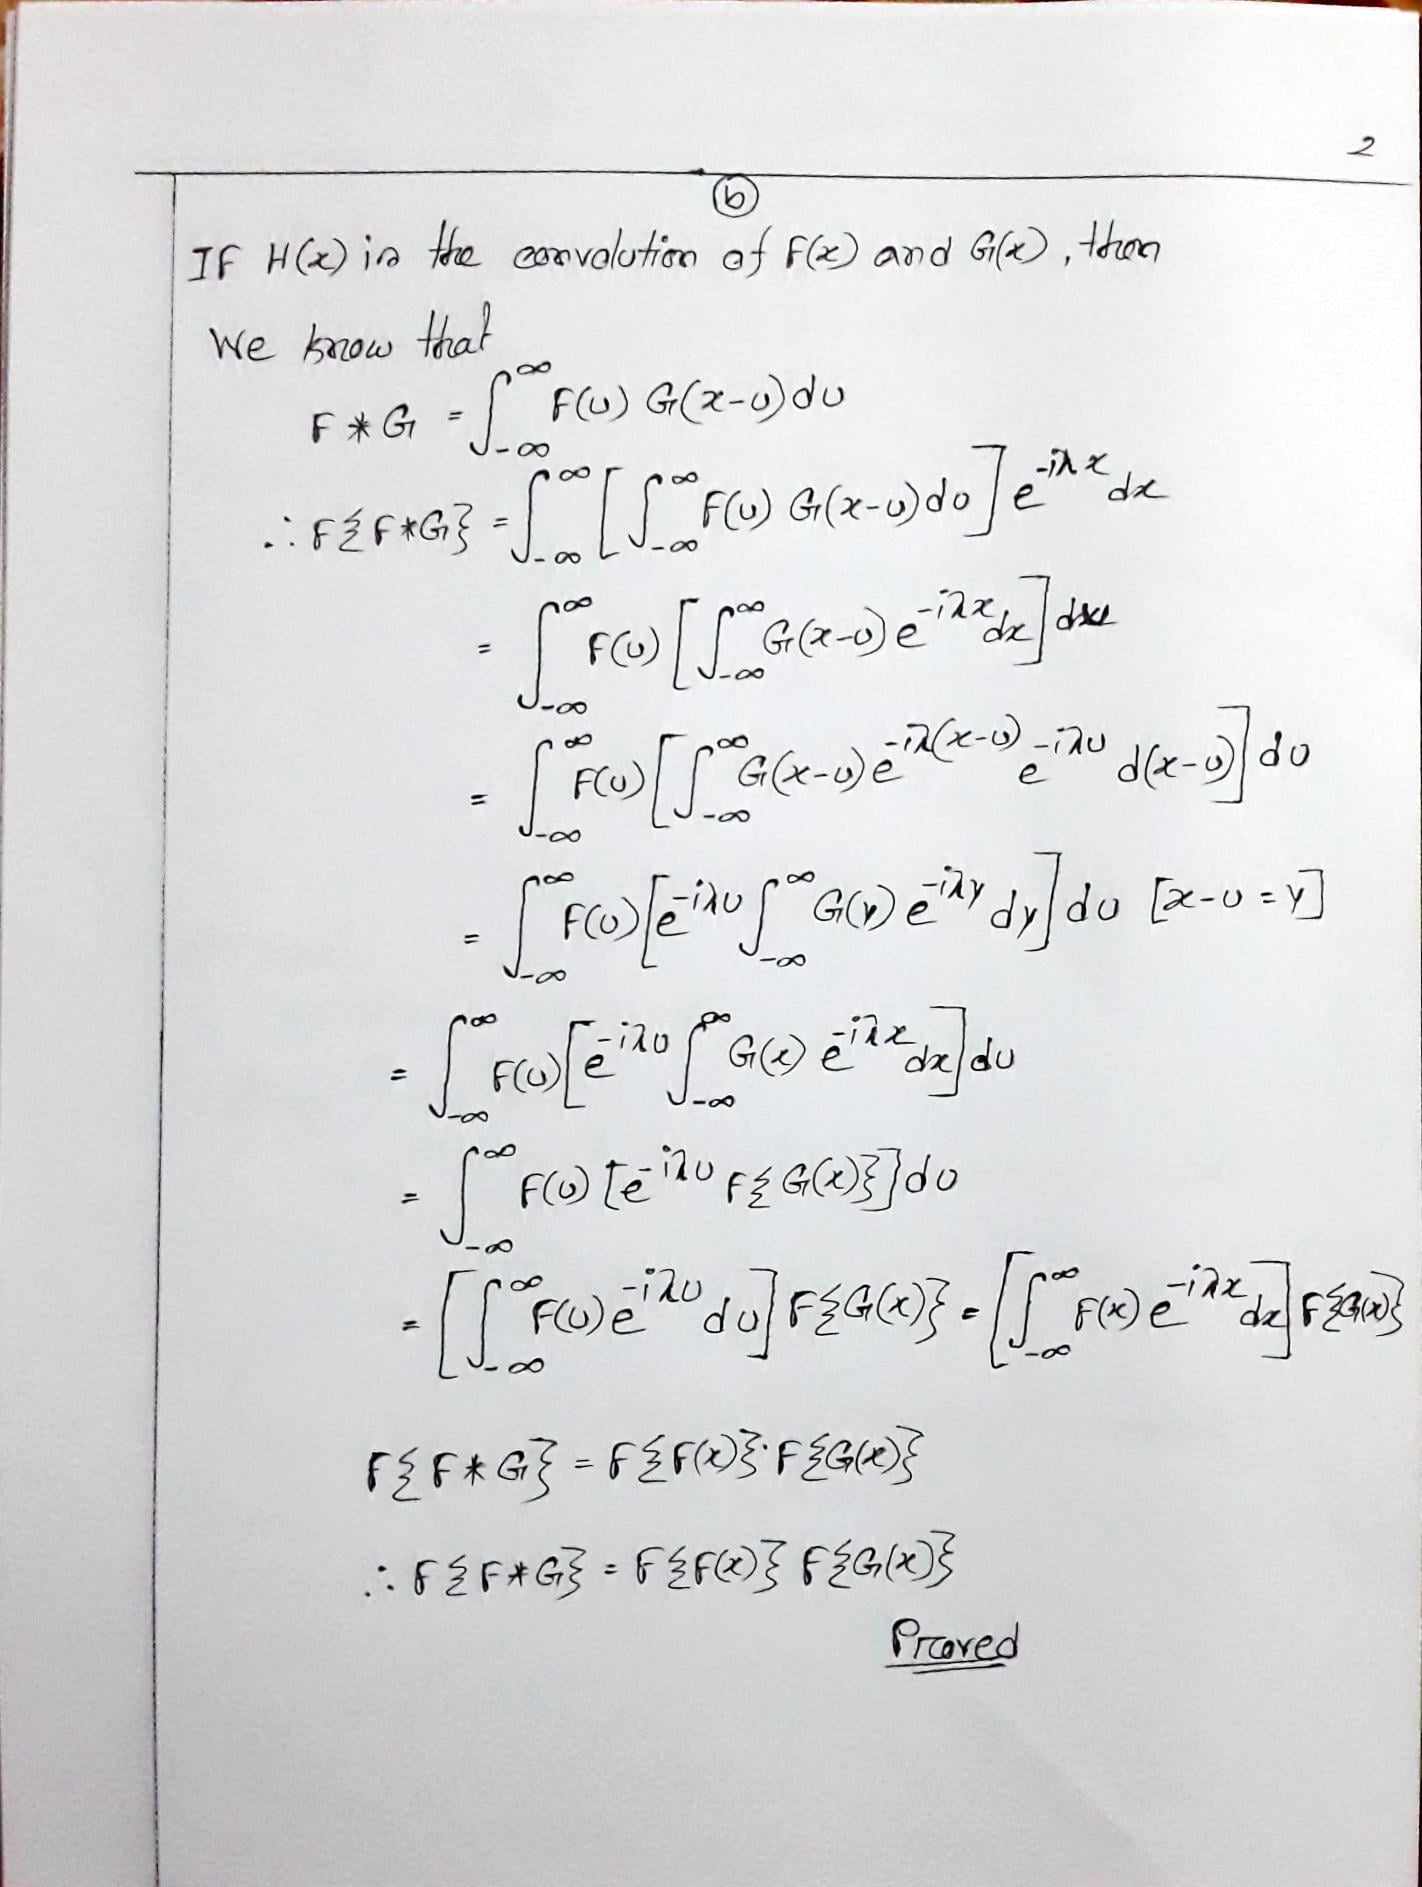 2
(b)
IF H(x) is the convolution of F(x) and G(x), then
We know that
F * G = ∫_{-∞}^{∞} F(u) G(x-u) du
∴ F{F*G} = ∫_{-∞}^{∞} [∫_{-∞}^{∞} F(u) G(x-u) du] e^{-iλx} dx
= ∫_{-∞}^{∞} F(u) [∫_{-∞}^{∞} G(x-u) e^{-iλx} dx] du
= ∫_{-∞}^{∞} F(u) [∫_{-∞}^{∞} G(x-u) e^{-iλ(x-u)} e^{-iλu} d(x-u)] du
= ∫_{-∞}^{∞} F(u) [e^{-iλu} ∫_{-∞}^{∞} G(y) e^{-iλy} dy] du [x-u = y]
= ∫_{-∞}^{∞} F(u) [e^{-iλu} ∫_{-∞}^{∞} G(x) e^{-iλx} dx] du
= ∫_{-∞}^{∞} F(u) [e^{-iλu} F{G(x)}] du
= [∫_{-∞}^{∞} F(u) e^{-iλu} du] F{G(x)} = [∫_{-∞}^{∞} F(x) e^{-iλx} dx] F{G(x)}
F{F * G} = F{F(x)}·F{G(x)}
∴ F{F*G} = F{F(x)} F{G(x)}
Proved